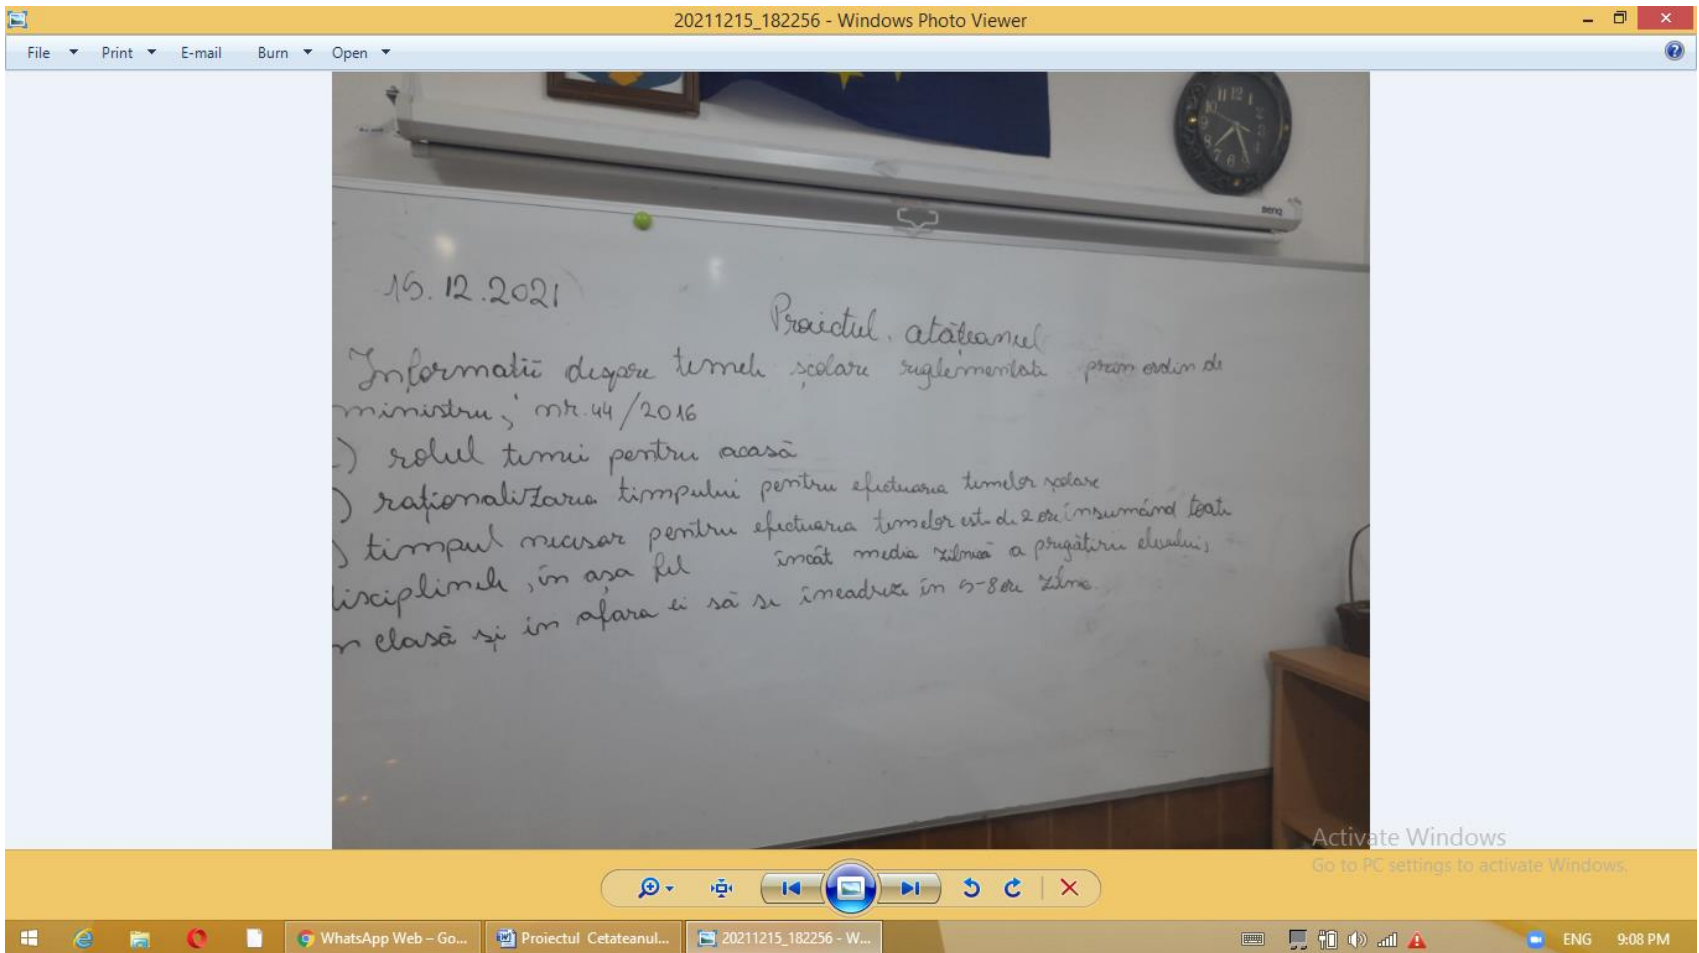 20211215_182256 - Windows Photo Viewer
File Print E-mail Burn Open
11 12 1
10
9
8
7 6
BenQ
15.12.2021
Proiectul. atăteanul
Informatii despre temele școlare reglementate prin ordin de
ministru, nr. 44/2016
) rolul temei pentru acasă
) raționalizarea timpului pentru efectuarea temelor școlare
) timpul necesar pentru efectuarea temelor este de 2 ore, însumând toate
disciplinele, în așa fel încât media zilnică a pregătirii elevului,
n clasă și în afara ei să se încadreze în 5-8 ore zilnic.
Activate Windows
Go to PC settings to activate Windows.
WhatsApp Web – Go... Proiectul Cetateanul... 20211215_182256 - W... ENG 9:08 PM